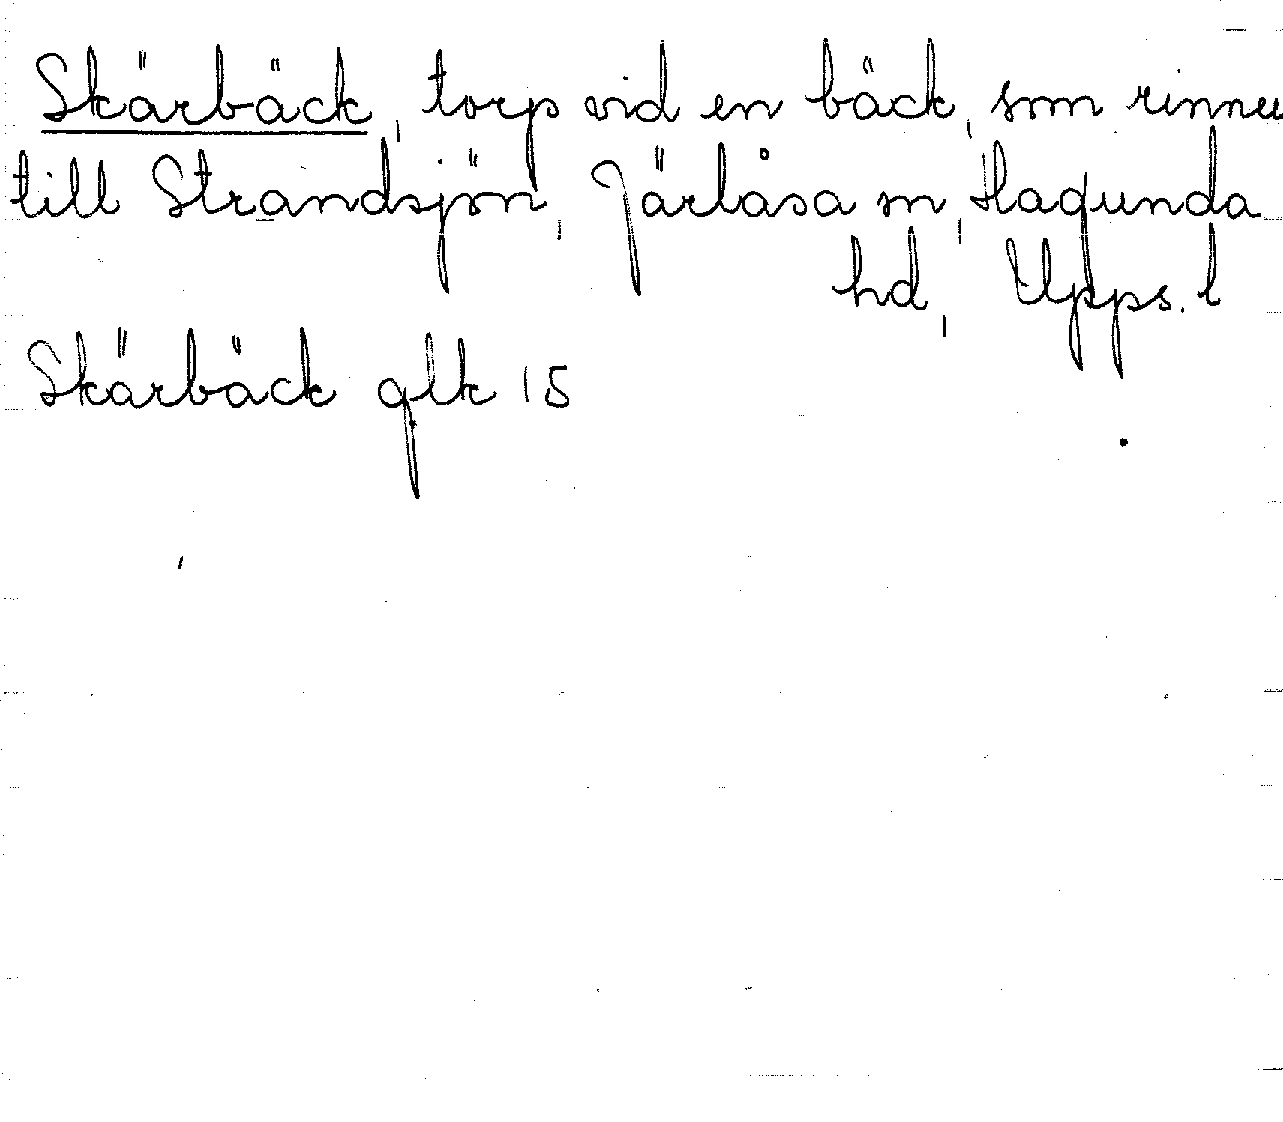 Skärbäck, torp vid en bäck, som rinner
till Strandsjön, Järlåsa sn, Hagunda
hd, Upps. l
Skärbäck glk 15